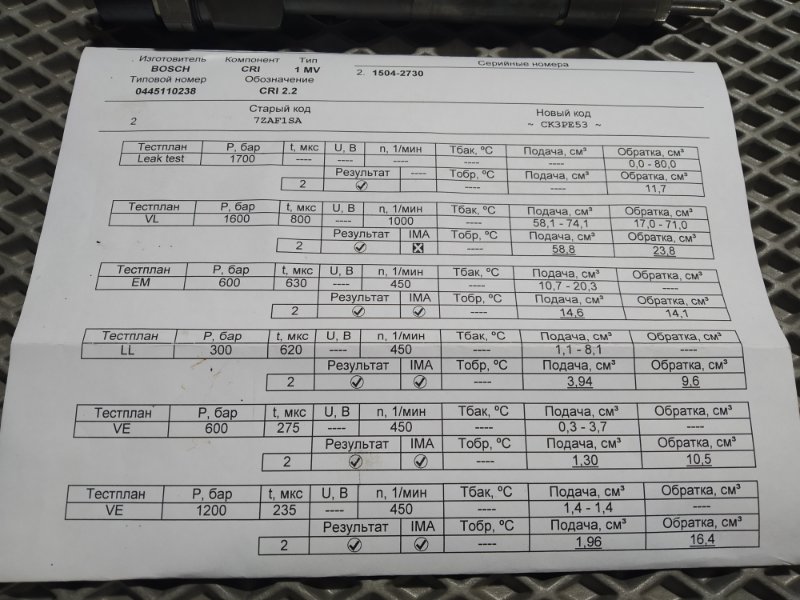 Изготовитель Компонент Тип Серийные номера
BOSCH CRI 1 MV 2. 1504-2730
Типовой номер Обозначение
0445110238 CRI 2.2
Старый код Новый код
2 7ZAF1SA ~ CK3PE53 ~
Тестплан P, бар t, мкс U, В n, 1/мин Tбак, ºC Подача, см³ Обратка, см³
Leak test 1700 ---- ---- ---- ---- ---- 0,0 - 80,0
Результат ---- Tобр, ºC Подача, см³ Обратка, см³
2 ---- ---- 11,7
Тестплан P, бар t, мкс U, В n, 1/мин Tбак, ºC Подача, см³ Обратка, см³
VL 1600 800 ---- 1000 ---- 58,1 - 74,1 17,0 - 71,0
Результат IMA Tобр, ºC Подача, см³ Обратка, см³
2 ---- 58,8 23,8
Тестплан P, бар t, мкс U, В n, 1/мин Tбак, ºC Подача, см³ Обратка, см³
EM 600 630 ---- 450 ---- 10,7 - 20,3 ----
Результат IMA Tобр, ºC Подача, см³ Обратка, см³
2 ---- 14,6 14,1
Тестплан P, бар t, мкс U, В n, 1/мин Tбак, ºC Подача, см³ Обратка, см³
LL 300 620 ---- 450 ---- 1,1 - 8,1 ----
Результат IMA Tобр, ºC Подача, см³ Обратка, см³
2 ---- 3,94 9,6
Тестплан P, бар t, мкс U, В n, 1/мин Tбак, ºC Подача, см³ Обратка, см³
VE 600 275 ---- 450 ---- 0,3 - 3,7 ----
Результат IMA Tобр, ºC Подача, см³ Обратка, см³
2 ---- 1,30 10,5
Тестплан P, бар t, мкс U, В n, 1/мин Tбак, ºC Подача, см³ Обратка, см³
VE 1200 235 ---- 450 ---- 1,4 - 1,4 ----
Результат IMA Tобр, ºC Подача, см³ Обратка, см³
2 ---- 1,96 16,4